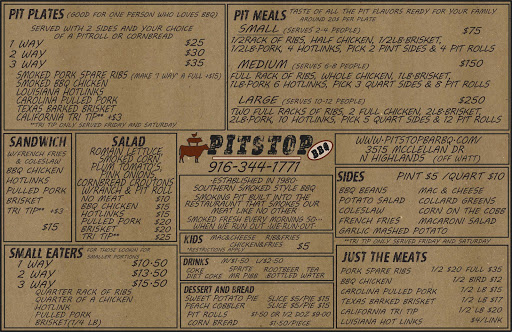 PIT PLATES (GOOD FOR ONE PERSON WHO LOVES BBQ)
SERVED WITH 2 SIDES AND YOUR CHOICE
OF A PITROLL OR CORNBREAD
1 WAY $25
2 WAY $30
3 WAY $35
SMOKED PORK SPARE RIBS (MAKE '1 WAY' A FULL +$15)
SMOKED BBQ CHICKEN
LOUISIANA HOTLINKS
CAROLINA PULLED PORK
TEXAS BARKED BRISKET
CALIFORNIA TRI TIP** +$3
**TRI TIP ONLY SERVED FRIDAY AND SATURDAY
PIT MEALS TASTE OF ALL THE PIT FLAVORS READY FOR YOUR FAMILY
AROUND 20$ PER PLATE
SMALL (SERVES 2-4 PEOPLE) $75
1/2RACK OF RIBS, HALF CHICKEN, 1/2LB BRISKET,
1/2LB PORK, 4 HOTLINKS, PICK 2 PINT SIDES & 4 PIT ROLLS
MEDIUM (SERVES 6-8 PEOPLE) $150
FULL RACK OF RIBS, WHOLE CHICKEN, 1LB BRISKET,
1LB PORK 6 HOTLINKS, PICK 3 QUART SIDES & 8 PIT ROLLS
LARGE (SERVES 10-12 PEOPLE) $250
TWO FULL RACKS OF RIBS, 2 FULL CHICKEN, 2LB BRISKET
2LB PORK, 10 HOTLINKS, PICK 5 QUART SIDES & 12 PIT ROLLS
SANDWICH
W/FRENCH FRIES
& COLESLAW
BBQ CHICKEN
HOTLINKS
PULLED PORK
BRISKET
TRI TIP** +$3
$15
SALAD
ROMAIN LETTUCE,
SMOKED CORN,
PLUM TOMATO'S,
PINK ONIONS,
CORNBREAD CROUTONS
W/RANCH & PIT ROLL
NO MEAT $10
BBQ CHICKEN $15
HOTLINKS $15
PULLED PORK $20
BRISKET $20
TRI TIP** $25
PITSTOP BBQ
916-344-1771
ESTABLISHED IN 1980
SOUTHERN SMOKED STYLE BBQ
SMOKING PIT BUILT INTO THE
RESTAURAUNT THAT SMOKES OUR
MEAT LIKE NO OTHER
SMOKED FRESH EVERY MORNING SO--
WHEN WE RUN OUT WE RUN OUT
WWW.PITSTOPBARBQ.COM/
3515 MCCLELLAN DR
N HIGHLANDS (OFF WATT)
SIDES PINT $5 /QUART $10
BBQ BEANS MAC & CHEESE
POTATO SALAD COLLARD GREENS
COLESLAW CORN ON THE COBB
FRENCH FRIES MACARONI SALAD
GARLIC MASHED POTATO
**TRI TIP ONLY SERVED FRIDAY AND SATURDAY
KIDS MAC&CHEESE RIB&FRIES
CHICKEN&FRIES $5
SMALL EATERS FOR THOSE LOOKIN' FOR
SMALLER PORTIONS
1 WAY $10.50
2 WAY $13.50
3 WAY $15.50
QUARTER RACK OF RIBS
QUARTER OF A CHICKEN
HOTLINK
PULLED PORK
BRISKET(1/4 LB)
DRINKS
COKE SPRITE ROOTBEER TEA
DIET COKE MR PIBB BOTTLED WATER
DESSERT AND BREAD
SWEET POTATO PIE SLICE $5/PIE $15
PEACH COBBLER SLICE $5/PIE $15
PIT ROLLS $1.50 OR 1/2 DOZ $9.00
CORN BREAD $1.50/PIECE
JUST THE MEATS
PORK SPARE RIBS 1/2 $20 FULL $35
BBQ CHICKEN 1/2 BIRD $12
CAROLINA PULLED PORK 1/2 LB $15
TEXAS BARKED BRISKET 1/2 LB $17
CALIFORNIA TRI TIP 1/2 LB $20
LOUISIANA HOT LINKS $4/LINK